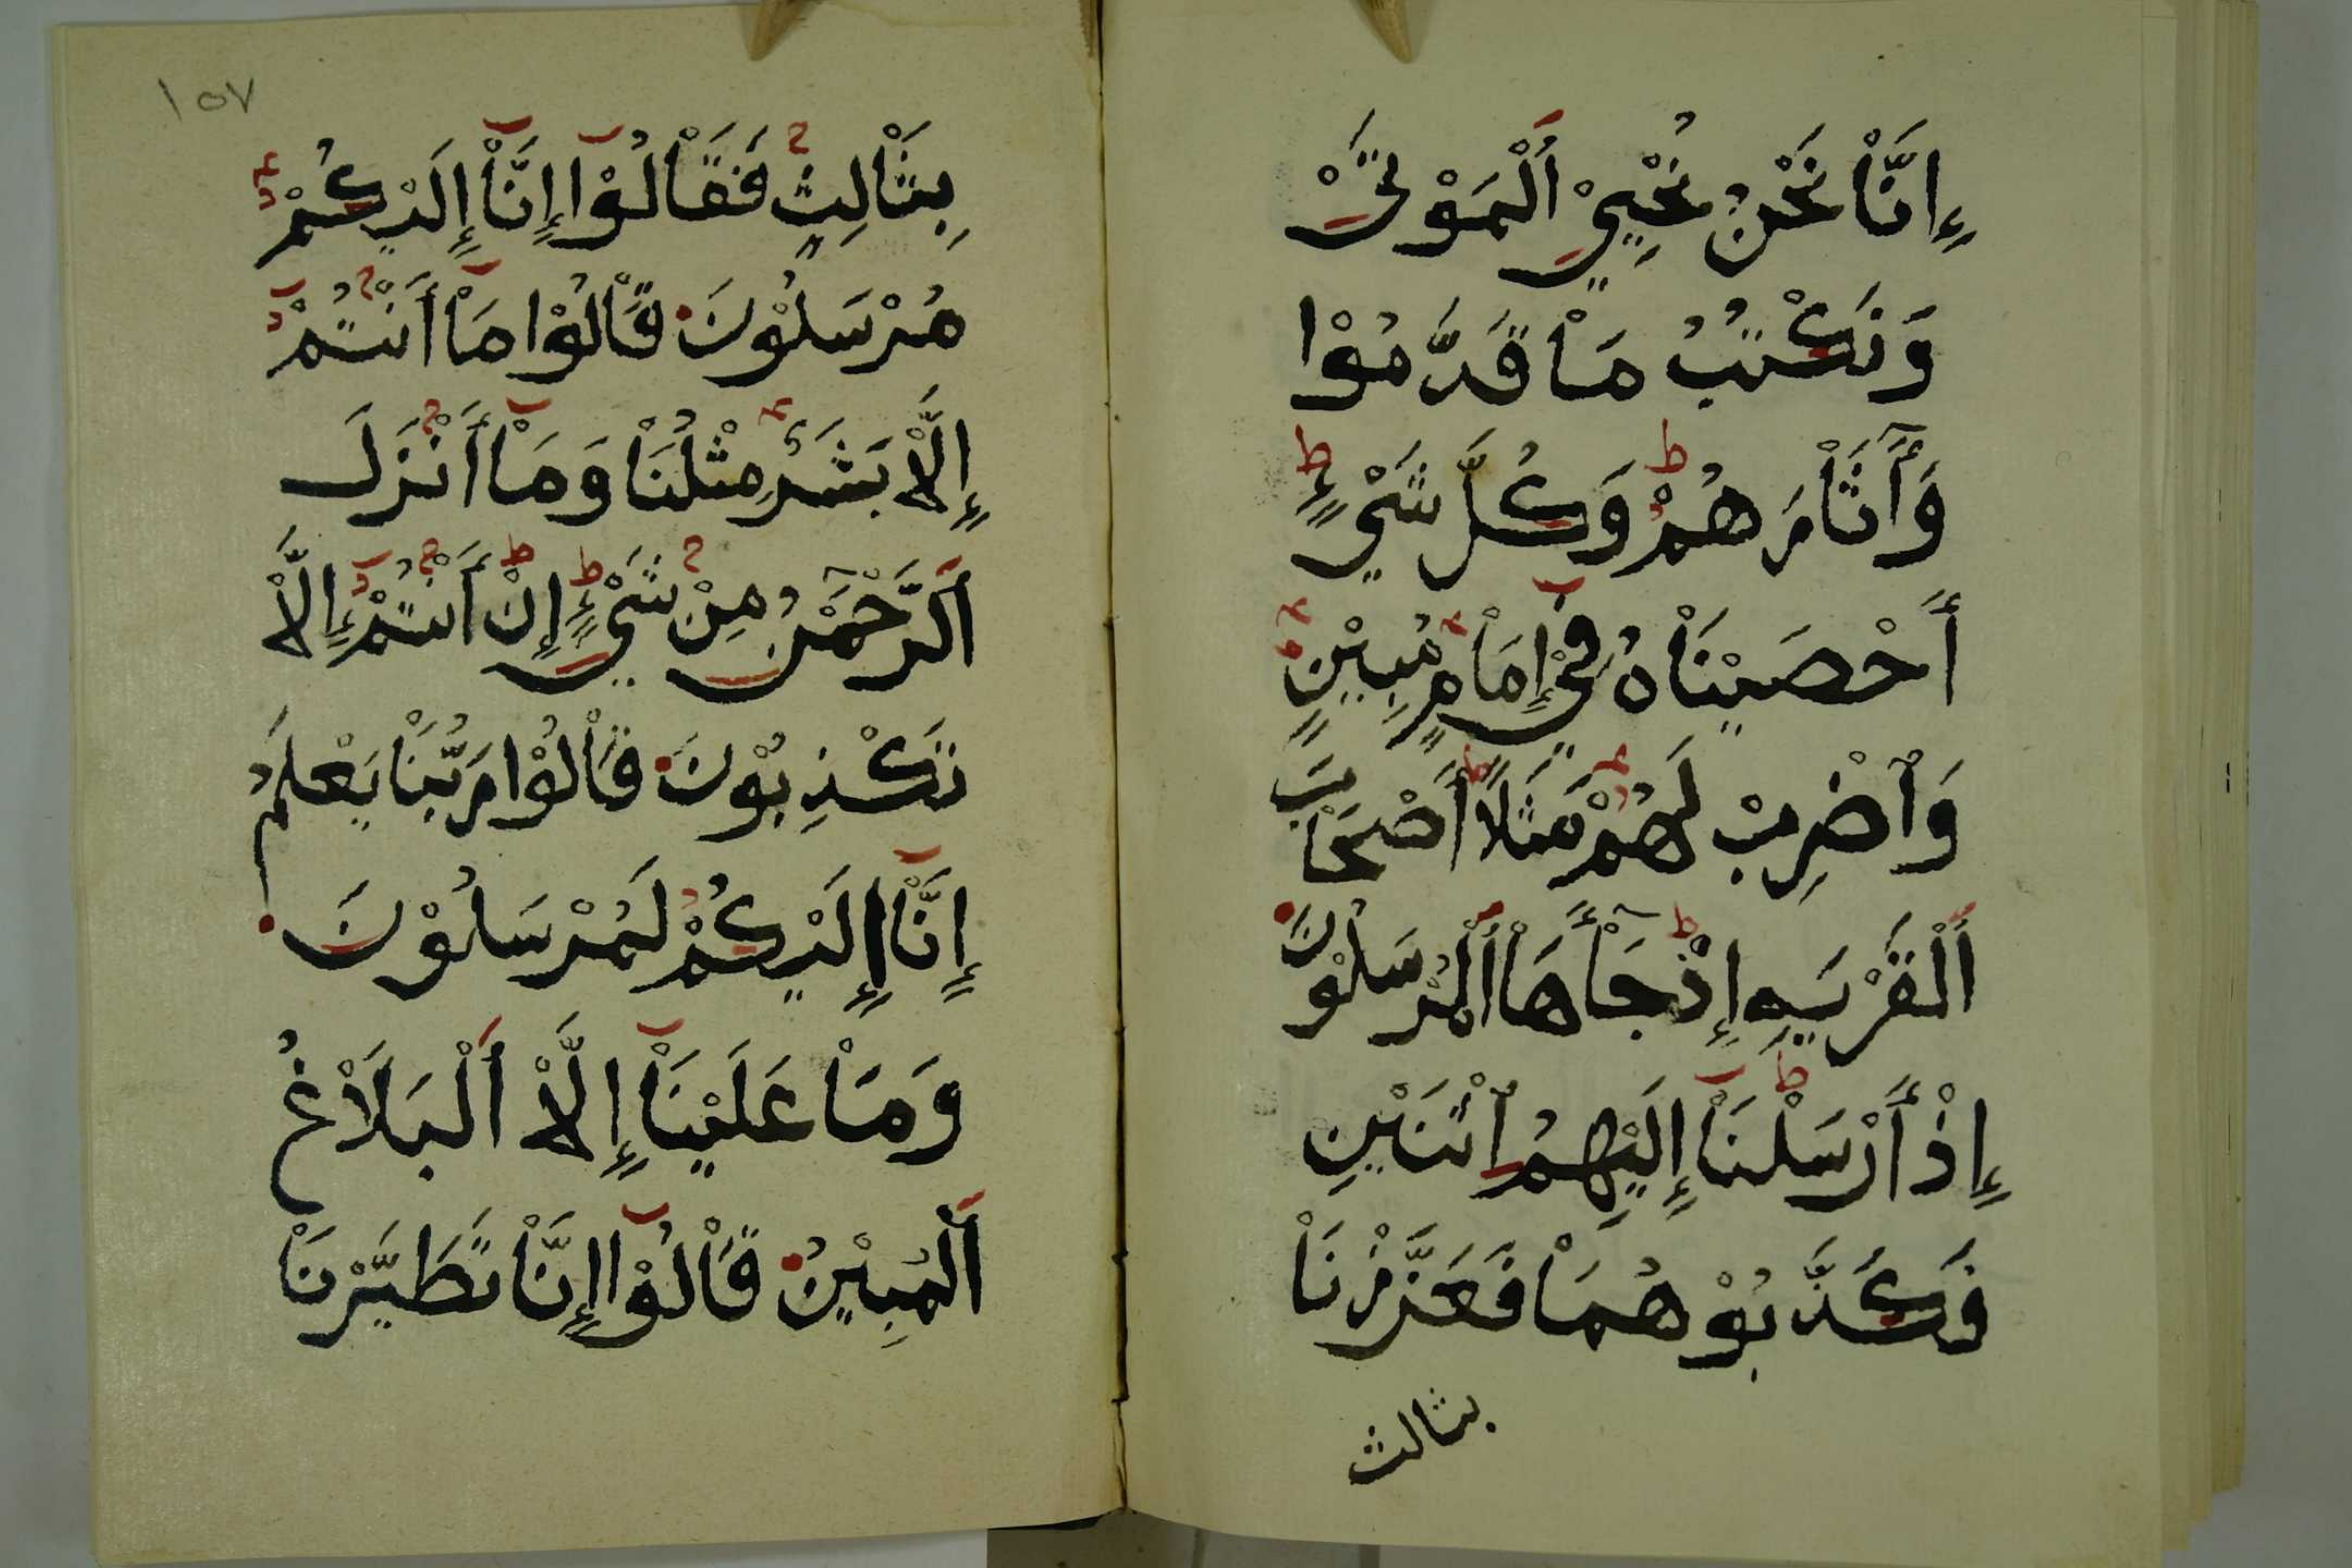 إِنَّاْ نَحْنُ نُحْيِيْ اَلْمَوْتَىْ
وَنَكْتُبُ مَاْ قَدَّمُوْا
وَآثَاْرَهُمْ وَكُلَّ شَيْءٍ
أَحْصَيْنَاْهُ فِيْ إِمَاْمٍ مُبِيْنٍ
وَاْضْرِبْ لَهُمْ مَثَلًا أَصْحَاْبَ
اَلْقَرْيَةِ إِذْ جَآءَهَاْ اَلْمُرْسَلُوْنَ
إِذْ أَرْسَلْنَاْ إِلَيْهِمُ اْثْنَيْنِ
فَكَذَّبُوْهُمَاْ فَعَزَّزْنَاْ
بثالث
١٥٧
بِثَاْلِثٍ فَقَاْلُوْا إِنَّاْ إِلَيْكُمْ
مُرْسَلُوْنَ قَاْلُوْا مَاْ أَنْتُمْ
إِلَّاْ بَشَرٌ مِثْلُنَاْ وَمَاْ أَنْزَلَ
اَلرَّحْمٰنُ مِنْ شَيْءٍ إِنْ أَنْتُمْ إِلَّاْ
تَكْذِبُوْنَ قَاْلُوْا رَبُّنَاْ يَعْلَمُ
إِنَّاْ إِلَيْكُمْ لَمُرْسَلُوْنَ
وَمَاْ عَلَيْنَاْ إِلَّاْ اَلْبَلَاْغُ
اَلْمُبِيْنُ قَاْلُوْا إِنَّاْ تَطَيَّرْنَاْ